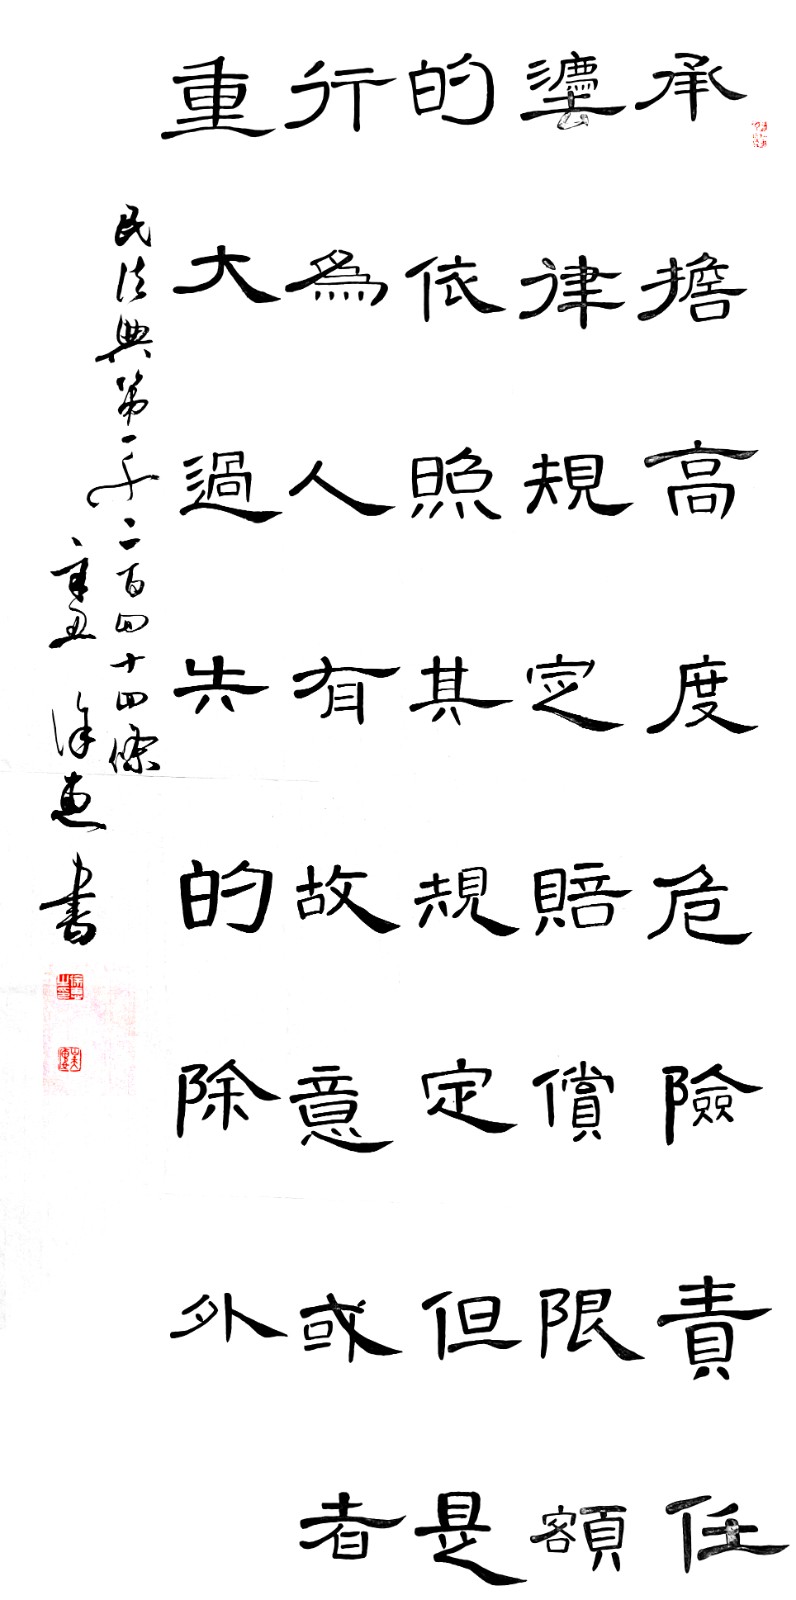 承擔高度危險責任
灋律規定賠償限額
的依照其規定但是
行為人有故意或者
重大過失的除外
民法典第一千二百四十四條
辛丑 徐惠書